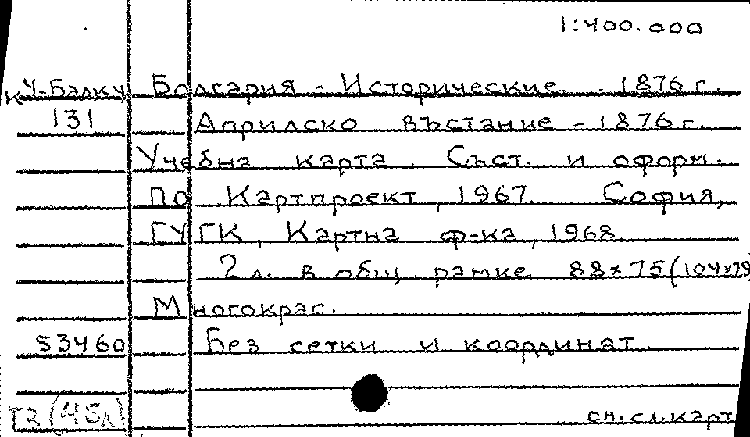 1:400.000
К У-Балку Болгария - Исторические - 1876 г.
131 Априлско въстание - 1876 г.
Учебна карта. Съст. и оформ.
по Картпроект, 1967. София,
ГУГК, Картна ф-ка, 1968.
2 л. в общ. рамке 88x75 (104x79
Многокрас.
53460 Без сетки и координат
Т2 (45л) сн.сл.карт